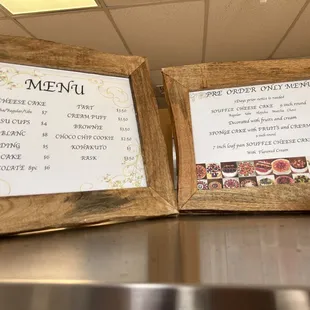 MENU
CHEESE CAKE
$7
SU CUPS $4
BLANC $5
DING $5
CAKE $6
OLATE 8pc $6
TART
CREAM PUFF
BROWNIE
CHOCO CHIP COOKIE
KOHAKUTO
RASK
PRE ORDER ONLY MENU
SOUFFLE CHEESE CAKE 6 inch round
Regular Matcha Choco
Decorated with fruits and cream
SPONGE CAKE with FRUITS and CREAM
6 inch round
7 inch loaf pan SOUFFLE CHEESE CAKE
With Flavored Cream